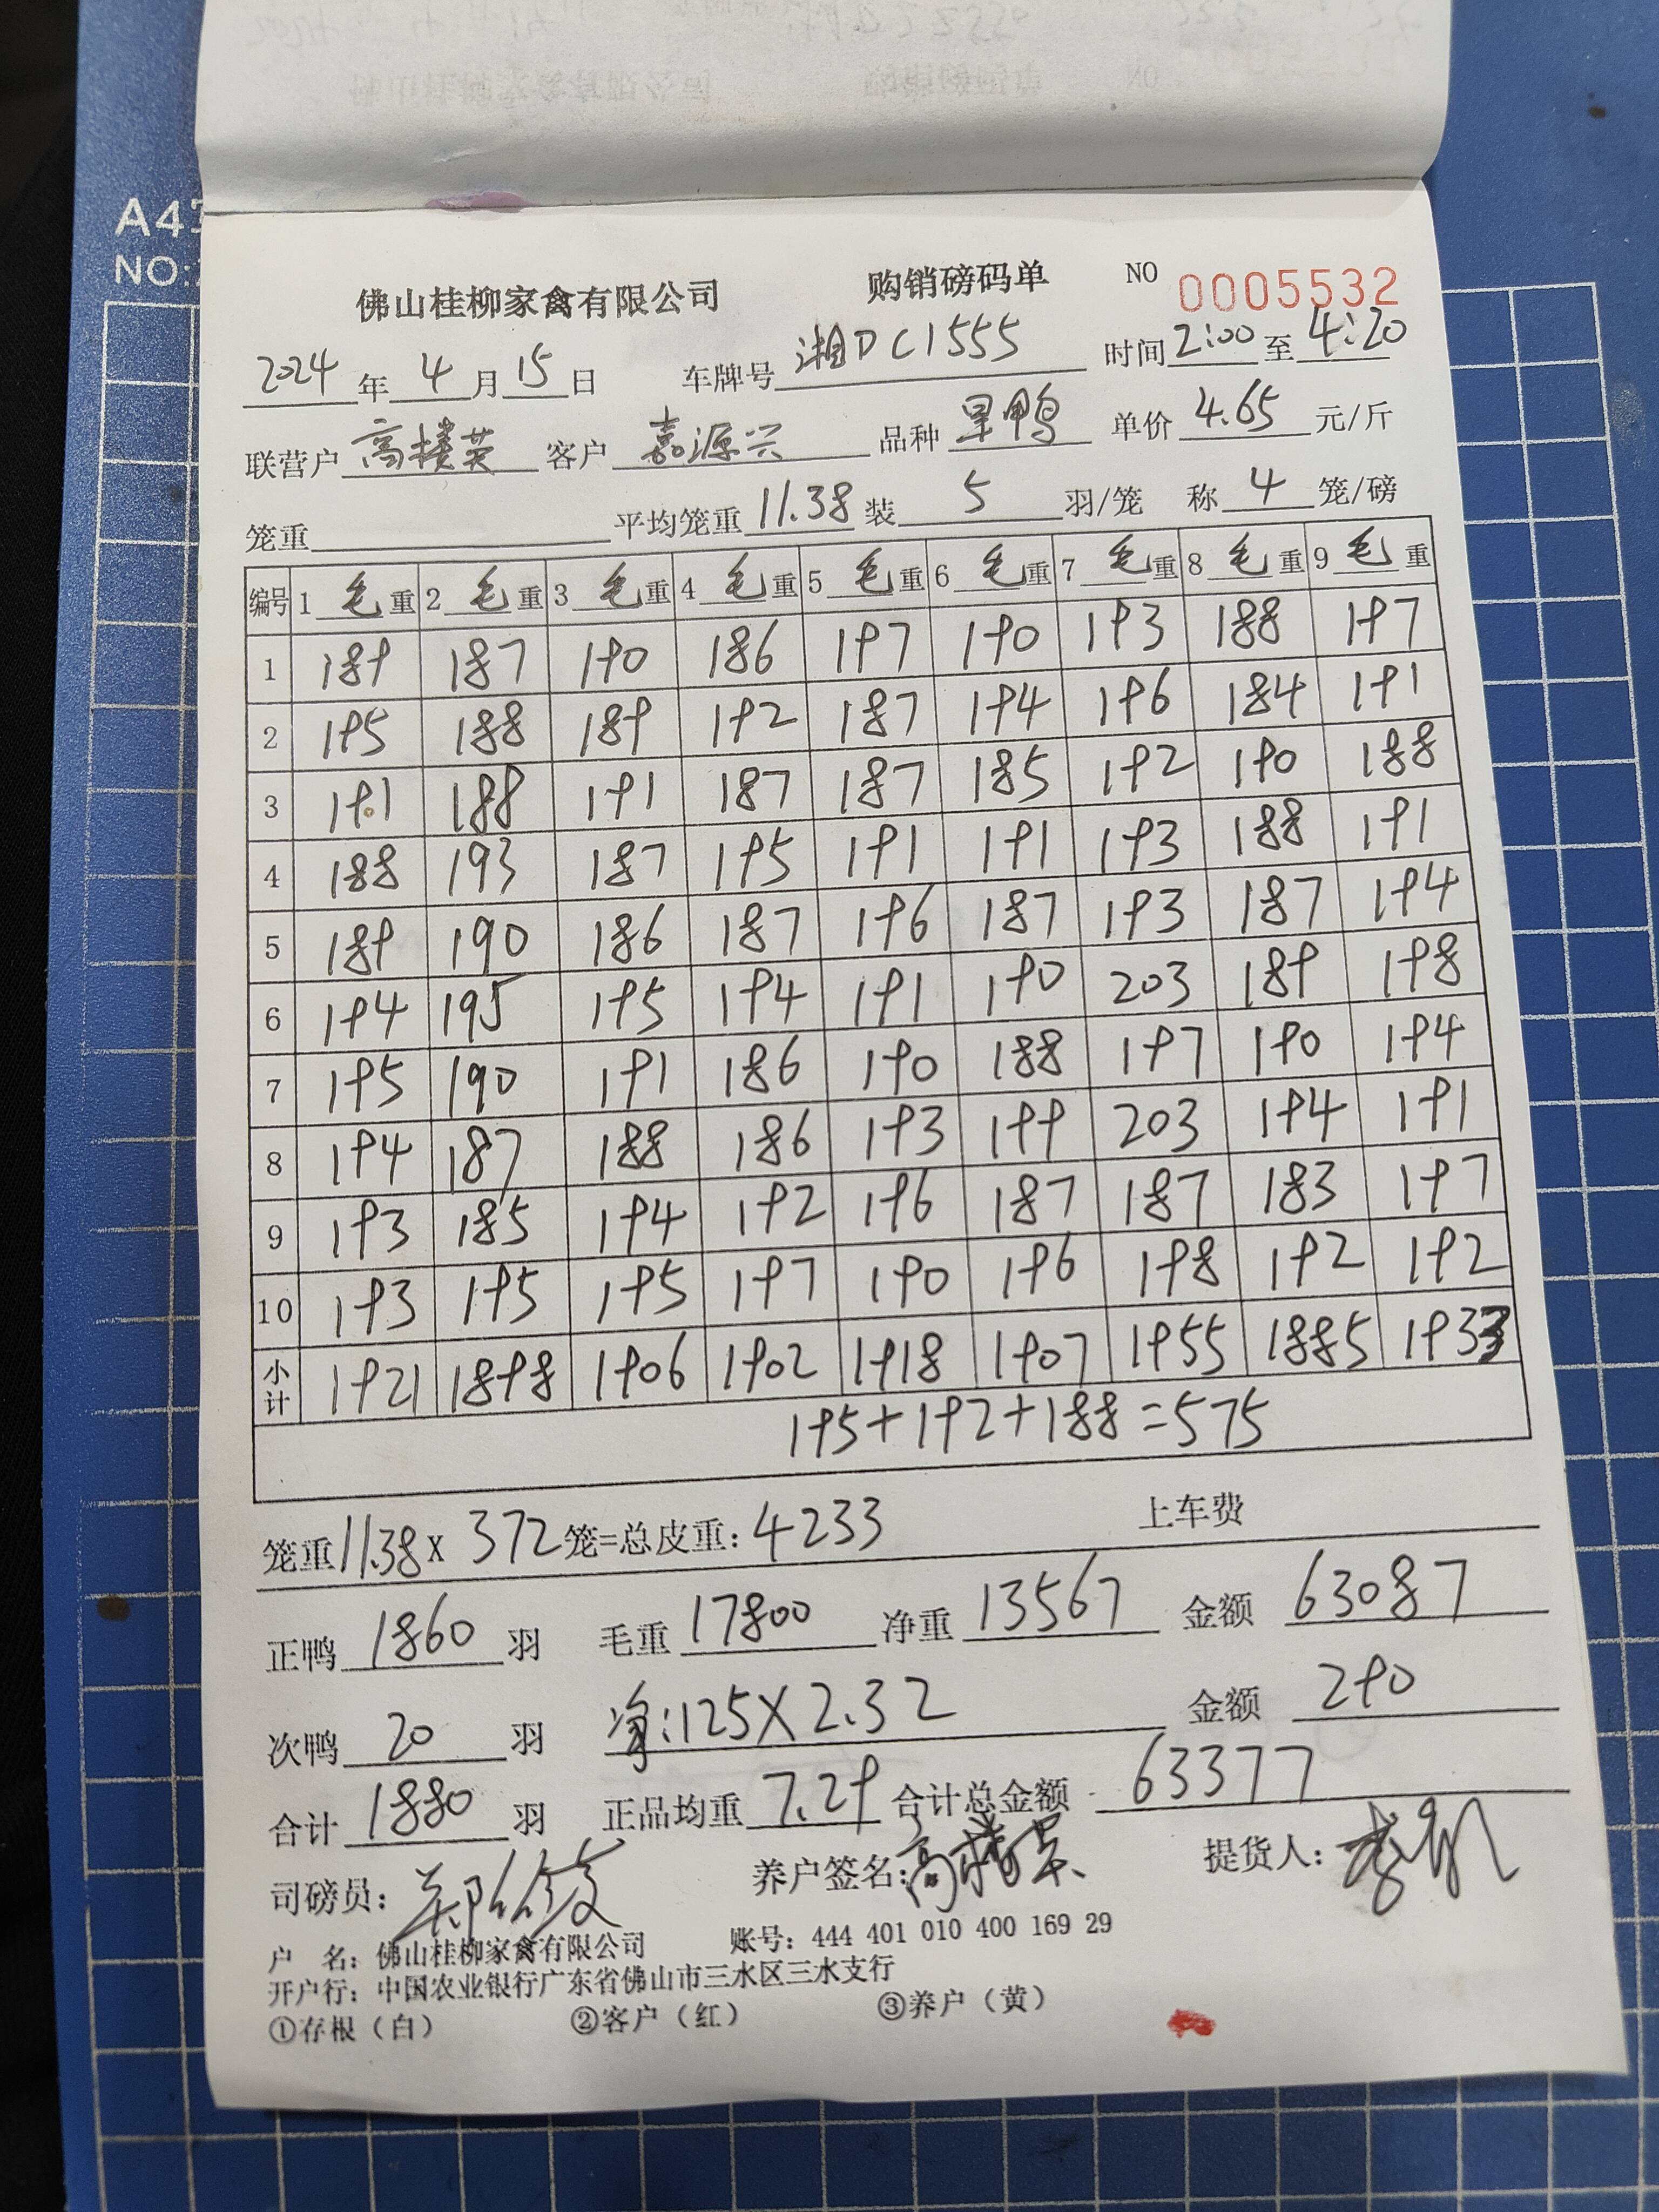 A4
NO:
佛山桂柳家禽有限公司 购销磅码单 NO 0005532
2024 年 4 月 15 日 车牌号 湘DC1555 时间 2:00 至 4:20
联营户 高楼英 客户 嘉源兴 品种 鸭 单价 4.65 元/斤
笼重 平均笼重 11.38 装 5 羽/笼 称 4 笼/磅
编号 1 毛 重 2 毛 重 3 毛 重 4 毛 重 5 毛 重 6 毛 重 7 毛 重 8 毛 重 9 毛 重
1 189 187 190 186 197 190 193 188 197
2 195 188 189 192 187 194 196 184 191
3 191 188 191 187 187 185 192 190 188
4 188 193 187 195 191 191 193 188 191
5 189 190 186 187 196 187 193 187 194
6 194 195 195 194 191 190 203 189 198
7 195 190 191 186 190 188 197 190 194
8 194 187 188 186 193 199 203 194 191
9 193 185 194 192 196 187 187 183 197
10 193 195 195 197 190 196 198 192 192
小计 1921 1898 1906 1902 1918 1907 1955 1885 1933
195+192+188=575
笼重 11.38 x 372 笼=总皮重: 4233 上车费
正鸭 1860 羽 毛重 17800 净重 13567 金额 63087
次鸭 20 羽 净:125X2.32 金额 290
合计 1880 羽 正品均重 7.29 合计总金额 63377
司磅员: 养户签名: 高楼英 提货人:
户 名: 佛山桂柳家禽有限公司 账号: 444 401 010 400 169 29
开户行: 中国农业银行广东省佛山市三水区三水支行
①存根（白） ②客户（红） ③养户（黄）